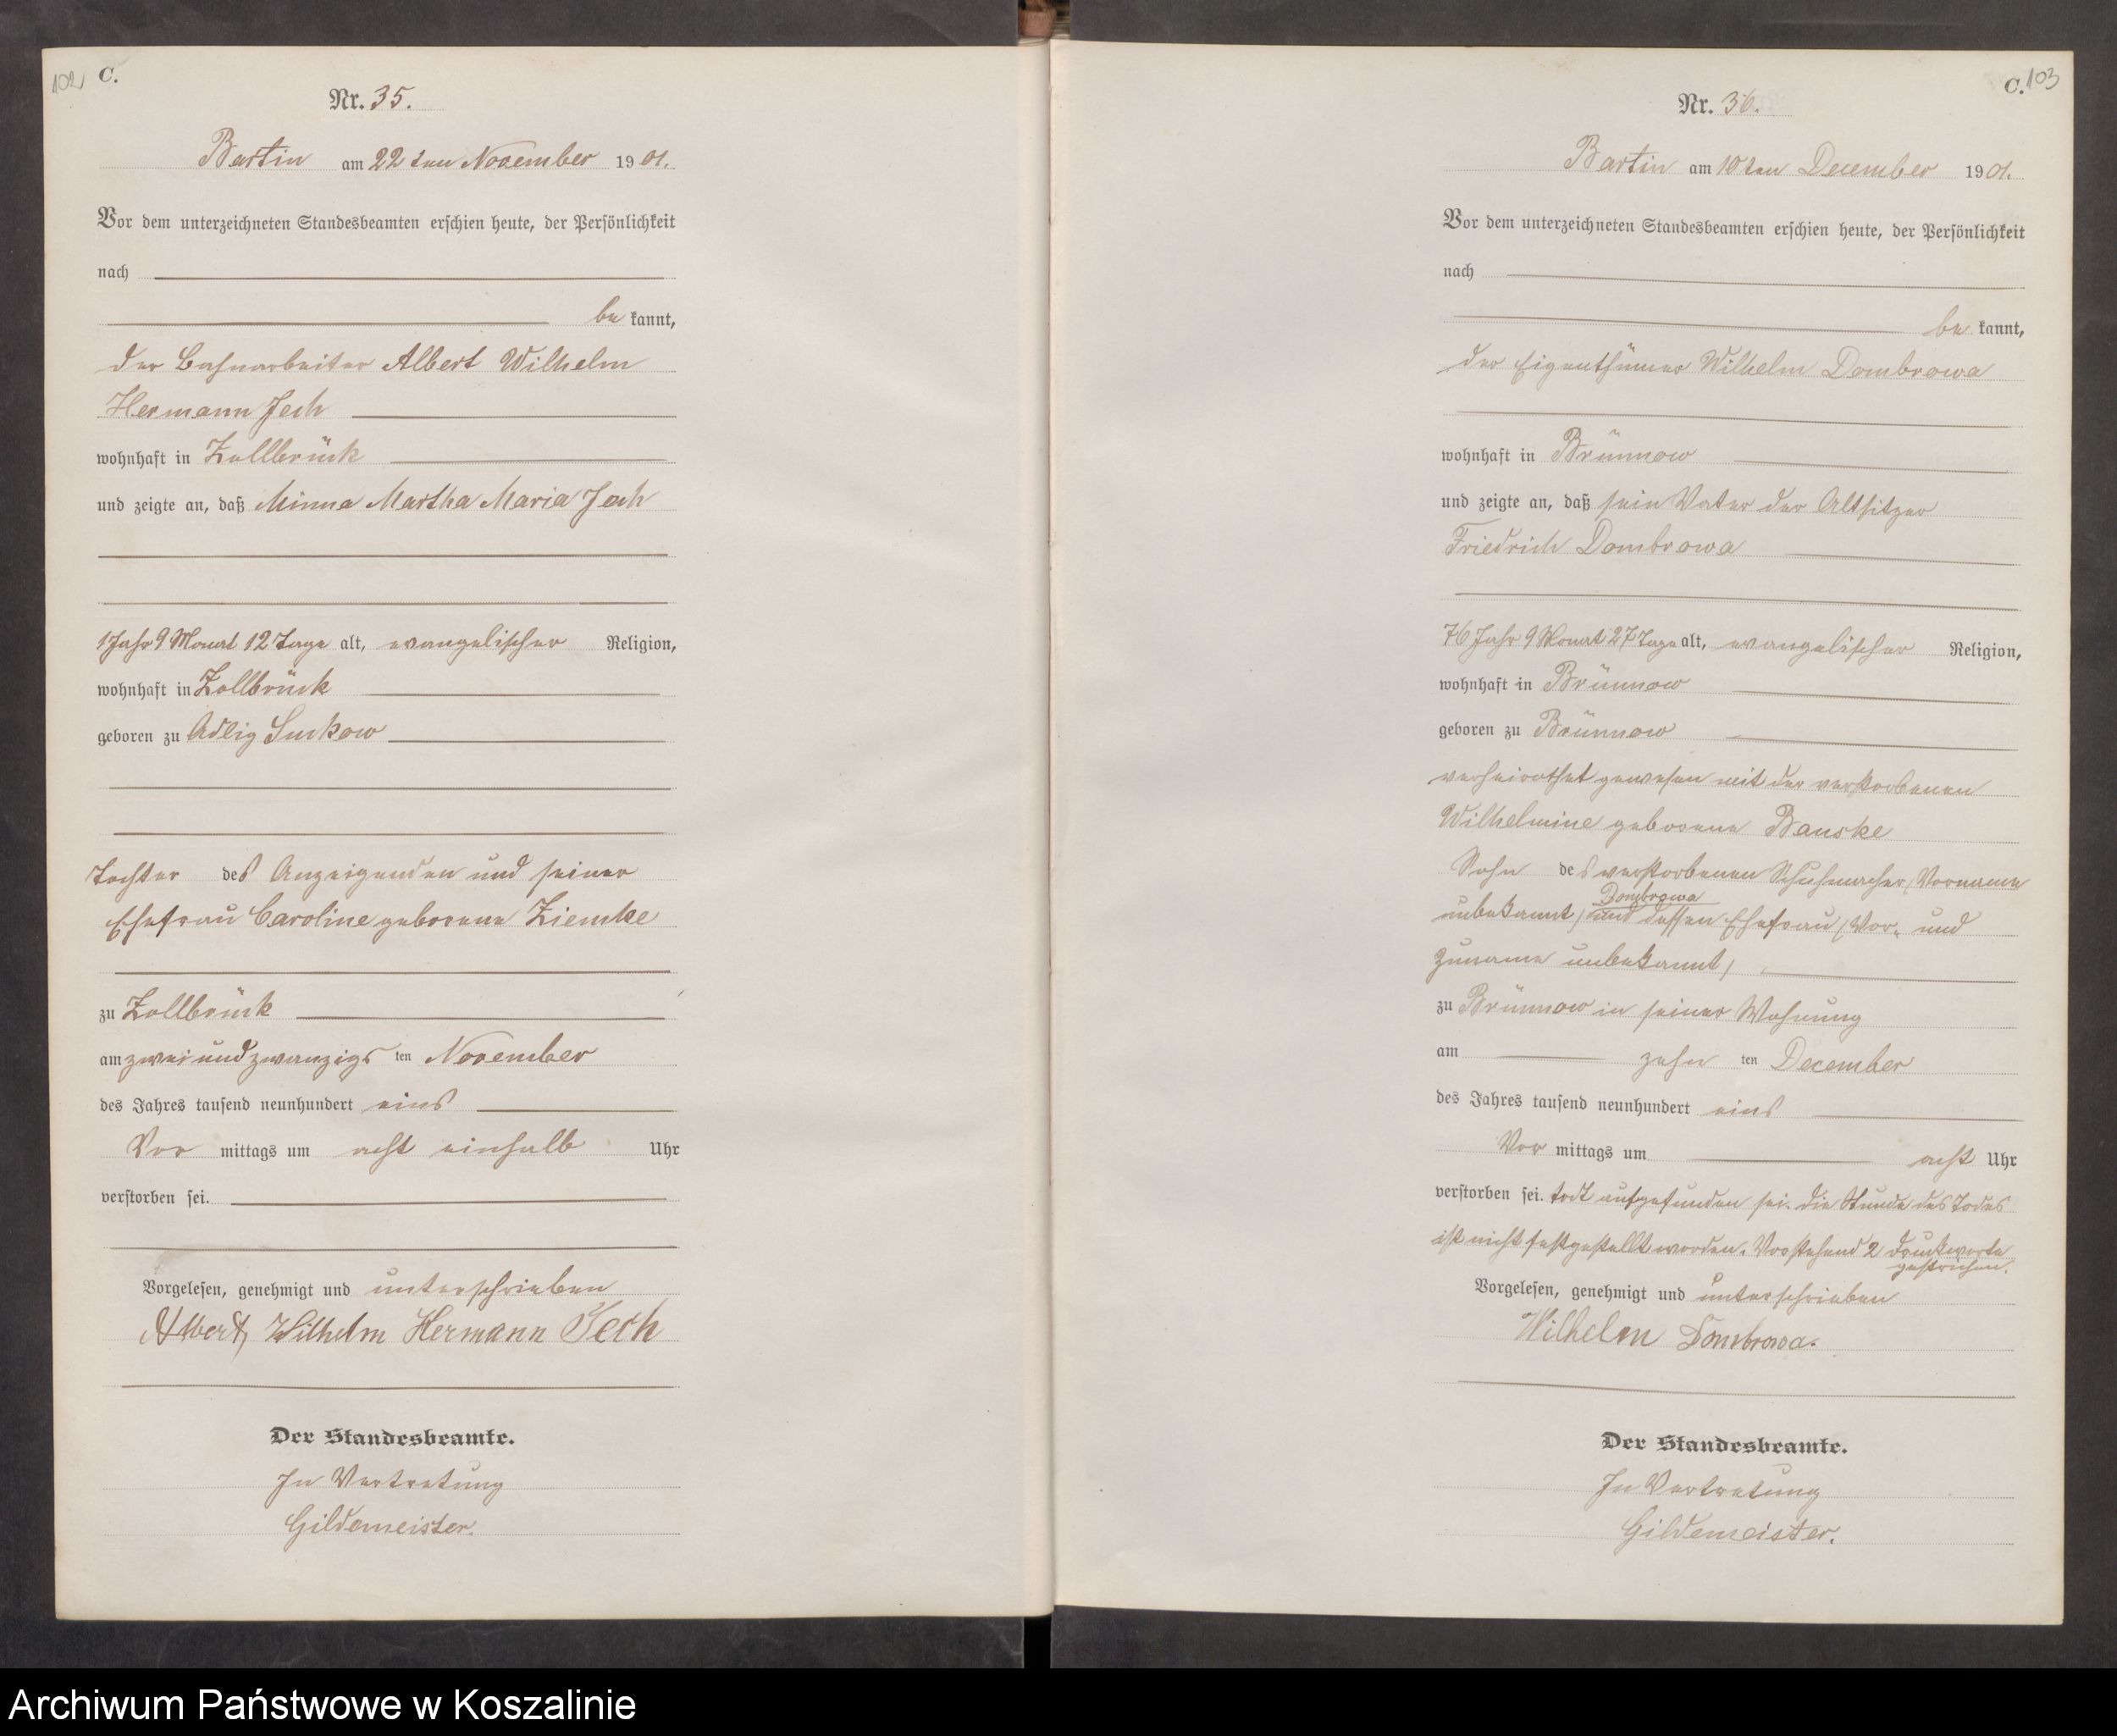 102
C.
Nr. 35.
Bartin am 22ten November 1901.
Vor dem unterzeichneten Standesbeamten erschien heute, der Persönlichkeit
nach
be kannt,
der Bahnarbeiter Albert Wilhelm
Hermann Jech
wohnhaft in Zollbrück
und zeigte an, daß Minna Martha Maria Jech
1 Jahr 9 Monat 12 Tage alt, evangelischer Religion,
wohnhaft in Zollbrück
geboren zu Adlig Suckow
Tochter des Anzeigenden und seiner
Ehefrau Caroline geborene Ziemke
zu Zollbrück
am zwei und zwanzigs ten November
des Jahres tausend neunhundert eins
Vor mittags um acht einhalb Uhr
verstorben sei.
Vorgelesen, genehmigt und unterschrieben
Albert Wilhelm Hermann Jech
Der Standesbeamte.
In Vertretung
Gildemeister.
C. 103
Nr. 36.
Bartin am 10ten December 1901.
Vor dem unterzeichneten Standesbeamten erschien heute, der Persönlichkeit
nach
be kannt,
der Eigenthümer Wilhelm Dombrowa
wohnhaft in Brünnow
und zeigte an, daß sein Vater der Altsitzer
Friedrich Dombrowa
76 Jahr 9 Monat 27 Tage alt, evangelischer Religion,
wohnhaft in Brünnow
geboren zu Brünnow
verheirathet gewesen mit der verstorbenen
Wilhelmine geborene Banske
Sohn des verstorbenen Schuhmacher (Vorname
Dombrowa
unbekannt) und dessen Ehefrau (Vor- und
Zuname unbekannt)
zu Brünnow in seiner Wohnung
am zehn ten December
des Jahres tausend neunhundert eins
Vor mittags um acht Uhr
verstorben sei. todt aufgefunden sei. Die Stunde des Todes
ist nicht festgestellt worden. Vorstehend 2 Druckworte
gestrichen.
Vorgelesen, genehmigt und unterschrieben
Wilhelm Dombrowa.
Der Standesbeamte.
In Vertretung
Gildemeister.
Archiwum Państwowe w Koszalinie